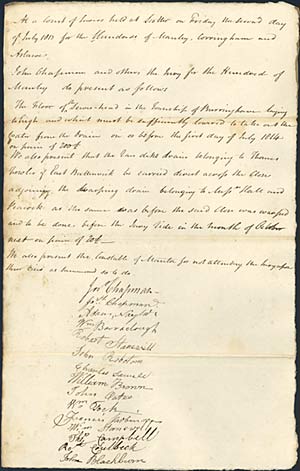 At a Court of Sewers held at Sotter on Friday the Second day
of July 1813 for the Hundreds of Manley, Corringham and
Aslacoe
John Chapman and others the Jury for the Hundred of
Manley do present as follows
The Floor of Sewer head in the Township of Burringham laying
to high and which must be sufficiently lowered to take out the
water from the Drain on or before the first day of July 1814
on pain of
We also present that the drain belonging to Thomas
of East Butterwick be carried direct across the Close
adjoining the Warping drain belonging to Messrs and
Peacock as the same was before the said Close was warped
and to be done before the Jury Ride in the month of October
next on pain of
We also present the Constable of for not attending the Inquest
as summoned so to do
Jno Chapman
Josh Chapman
Adam
Wm Barraclough
Robert
John
Charles
William Brown
John Oates
Wm
Francis
Wm
Thos Campbell
Caulbeck
John Blackburn